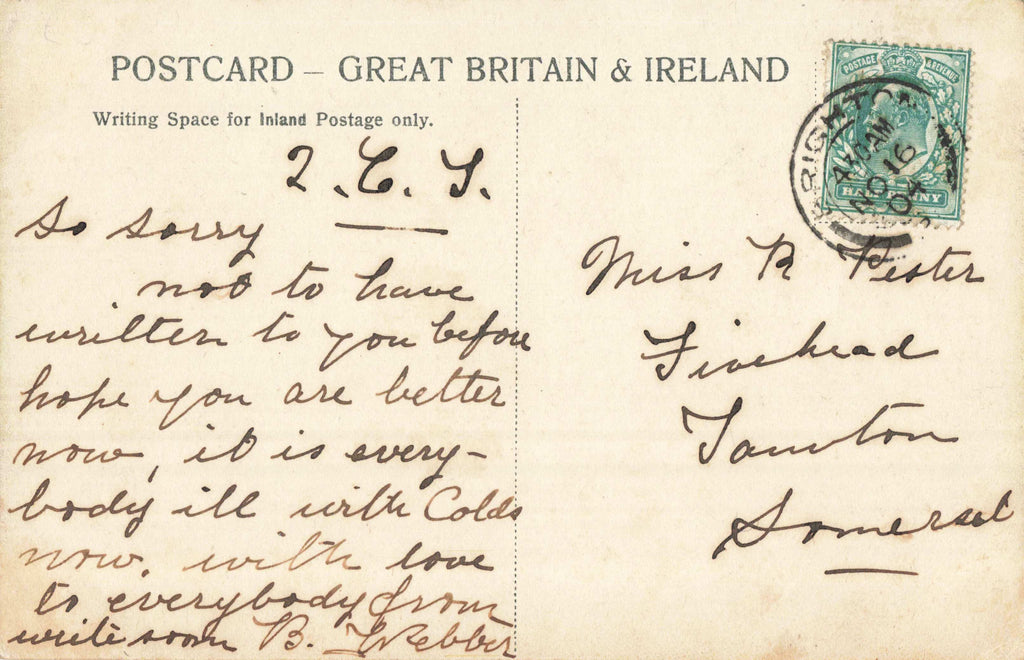 POSTCARD – GREAT BRITAIN & IRELAND
Writing Space for Inland Postage only.
2. C. S.
So sorry
not to have
written to you before
hope you are better
now, it is every-
body ill with Colds
now. with love
to everybody from
write soon B. Webber
Miss R Pester
Fivehead
Taunton
Somerset
POSTAGE & REVENUE
HALFPENNY
BRIGHTON
4 30 AM
NO 16
04